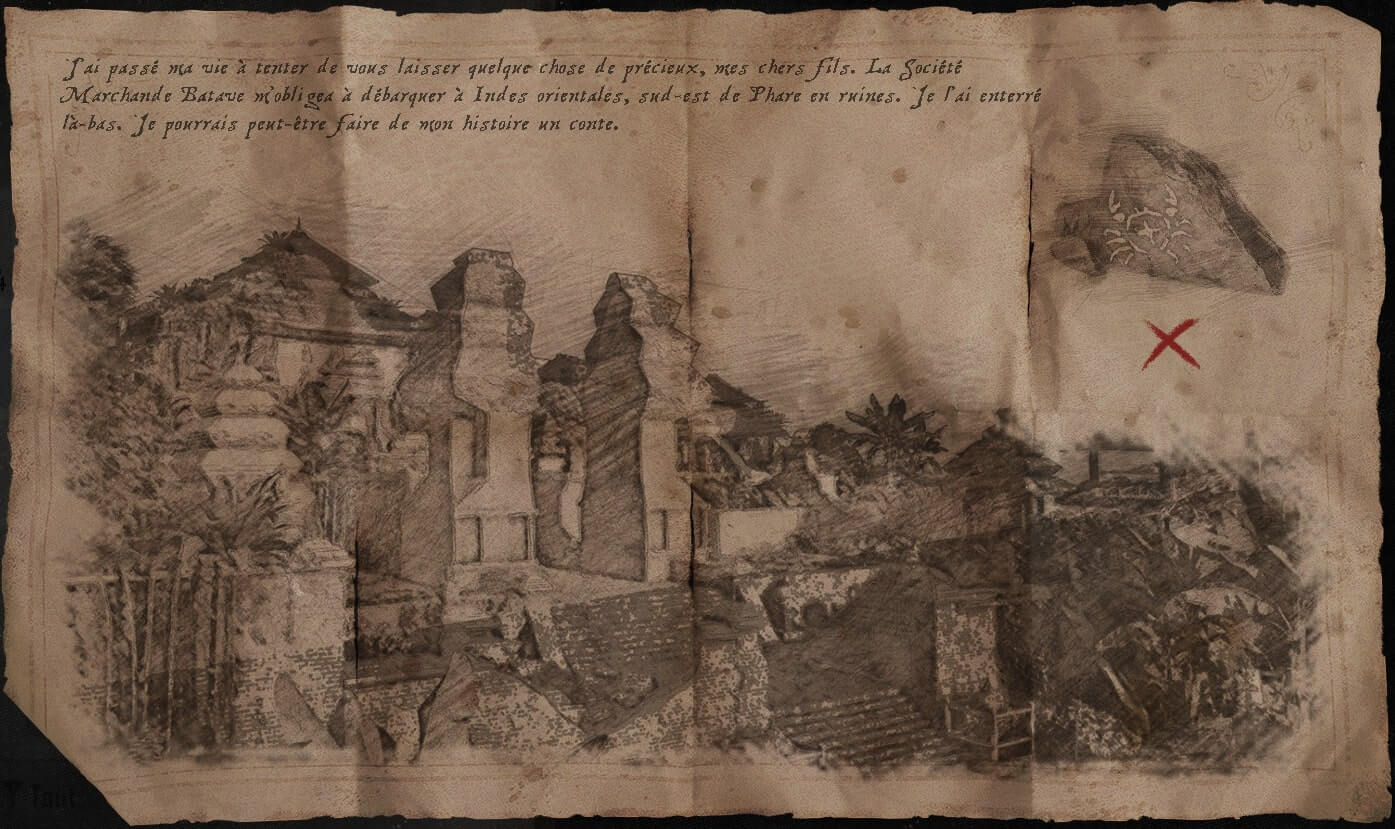 J'ai passé ma vie à tenter de vous laisser quelque chose de précieux, mes chers fils. La Société
Marchande Batave m'obligea à débarquer à Indes orientales, sud-est de Phare en ruines. Je l'ai enterré
là-bas. Je pourrais peut-être faire de mon histoire un conte.